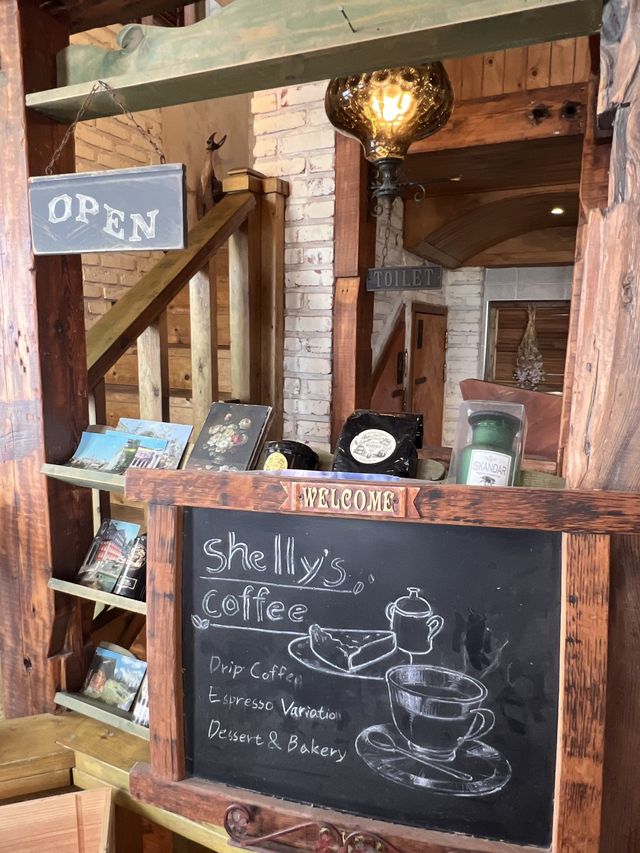 OPEN
TOILET
SKANDAR
WELCOME
shelly's
coffee
Drip Coffee
Espresso Variation
Dessert & Bakery